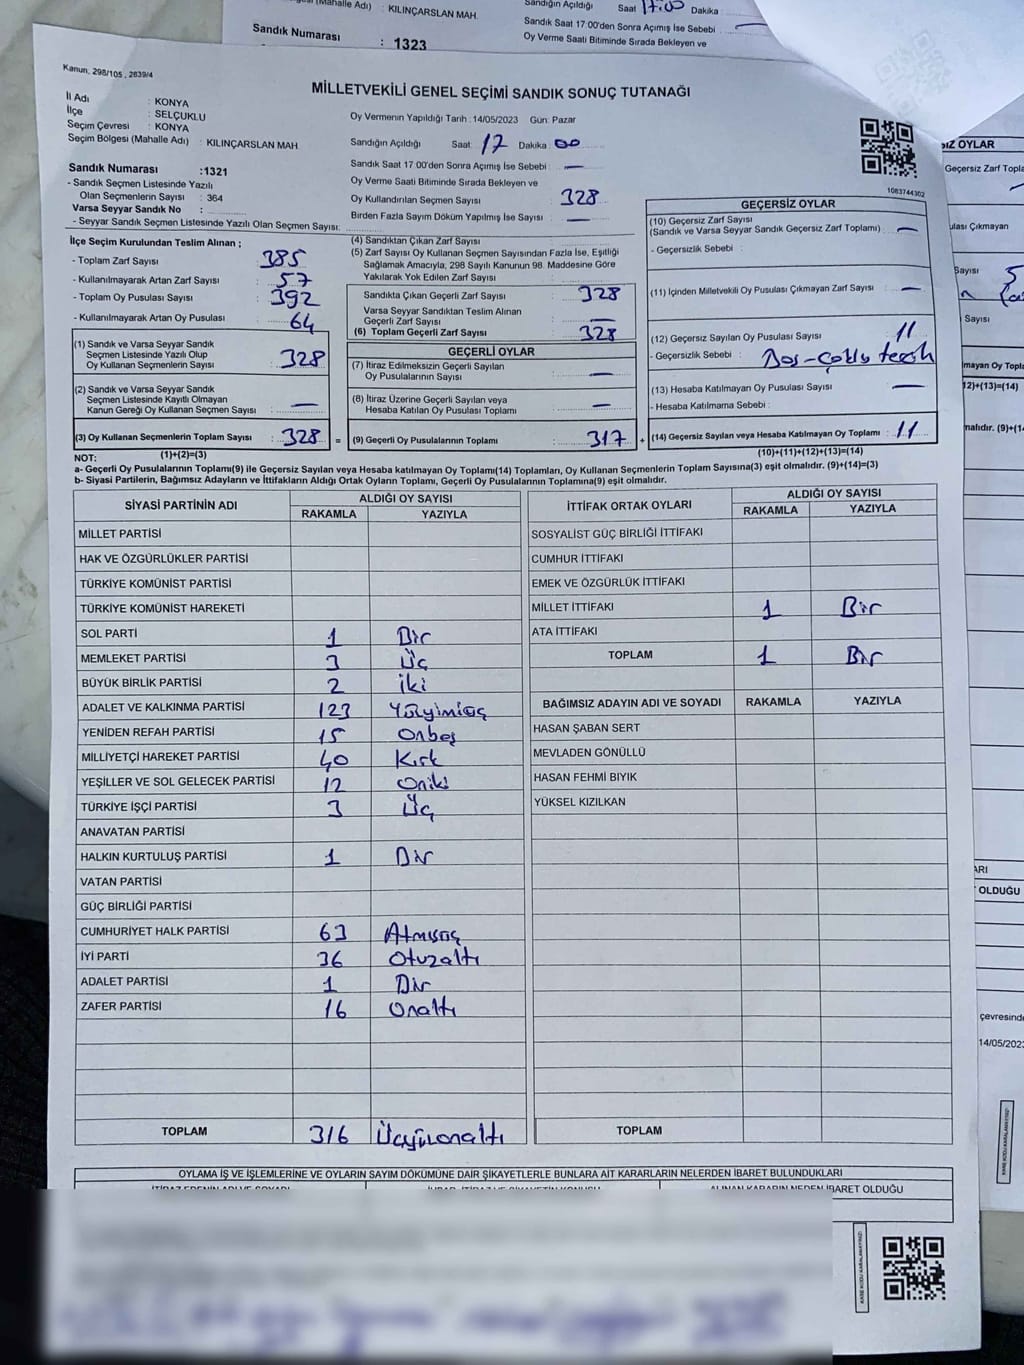 (Mahalle Adı) : KILINÇARSLAN MAH.
Sandık Numarası : 1323
Sandığın Açıldığı Saat 17:00 Dakika
Sandık Saat 17:00'den Sonra Açımış İse Sebebi
Oy Verme Saati Bitiminde Sırada Bekleyen ve
Kanun, 298/105, 2839/4
MİLLETVEKİLİ GENEL SEÇİMİ SANDIK SONUÇ TUTANAĞI
İl Adı : KONYA
İlçe : SELÇUKLU
Seçim Çevresi : KONYA
Seçim Bölgesi (Mahalle Adı) : KILINÇARSLAN MAH.
Oy Vermenin Yapıldığı Tarih :14/05/2023 Gün: Pazar
Sandığın Açıldığı Saat: 17 Dakika : 00
Sandık Saat 17:00'den Sonra Açımış İse Sebebi : —
Oy Verme Saati Bitiminde Sırada Bekleyen ve
Oy Kullandırılan Seçmen Sayısı : 328
Birden Fazla Sayım Döküm Yapılmış İse Sayısı : —
1083744302
Sandık Numarası :1321
- Sandık Seçmen Listesinde Yazılı
Olan Seçmenlerin Sayısı : 364
Varsa Seyyar Sandık No :
- Seyyar Sandık Seçmen Listesinde Yazılı Olan Seçmen Sayısı:
İlçe Seçim Kurulundan Teslim Alınan ;
- Toplam Zarf Sayısı : 385
- Kullanılmayarak Artan Zarf Sayısı : 57
- Toplam Oy Pusulası Sayısı : 392
- Kullanılmayarak Artan Oy Pusulası : 64
(1) Sandık ve Varsa Seyyar Sandık
Seçmen Listesinde Yazılı Olup
Oy Kullanan Seçmenlerin Sayısı : 328
(2) Sandık ve Varsa Seyyar Sandık
Seçmen Listesinde Kayıtlı Olmayan
Kanun Gereği Oy Kullanan Seçmen Sayısı : —
(3) Oy Kullanan Seçmenlerin Toplam Sayısı : 328 =
(1)+(2)=(3)
(4) Sandıktan Çıkan Zarf Sayısı :
(5) Zarf Sayısı Oy Kullanan Seçmen Sayısından Fazla İse, Eşitliği
Sağlamak Amacıyla, 298 Sayılı Kanunun 98. Maddesine Göre
Yakılarak Yok Edilen Zarf Sayısı :
Sandıkta Çıkan Geçerli Zarf Sayısı : 328
Varsa Seyyar Sandıktan Teslim Alınan
Geçerli Zarf Sayısı : —
(6) Toplam Geçerli Zarf Sayısı : 328
GEÇERLİ OYLAR
(7) İtiraz Edilmeksizin Geçerli Sayılan
Oy Pusulalarının Sayısı : —
(8) İtiraz Üzerine Geçerli Sayılan veya
Hesaba Katılan Oy Pusulası Toplamı : —
(9) Gelerli Oy Pusulalarının Toplamı : 317 +
GEÇERSİZ OYLAR
(10) Geçersiz Zarf Sayısı
(Sandık ve Varsa Seyyar Sandık Geçersiz Zarf Toplamı) : —
- Geçersizlik Sebebi :
(11) İçinden Milletvekili Oy Pusulası Çıkmayan Zarf Sayısı : —
(12) Geçersiz Sayılan Oy Pusulası Sayısı : 11
- Geçersizlik Sebebi :
(13) Hesaba Katılmayan Oy Pusulası Sayısı : —
- Hesaba Katılmama Sebebi :
(14) Geçersiz Sayılan veya Hesaba Katılmayan Oy Toplamı : 11
(10)+(11)+(12)+(13)=(14)
NOT:
a- Geçerli Oy Pusulalarının Toplamı(9) ile Geçersiz Sayılan veya Hesaba katılmayan Oy Toplamı(14) Toplamları, Oy Kullanan Seçmenlerin Toplam Sayısına(3) eşit olmalıdır. (9)+(14)=(3)
b- Siyasi Partilerin, Bağımsız Adayların ve İttifakların Aldığı Ortak Oyların Toplamı, Geçerli Oy Pusulalarının Toplamına(9) eşit olmalıdır.
SİYASİ PARTİNİN ADI ALDIĞI OY SAYISI
RAKAMLA YAZIYLA
MİLLET PARTİSİ
HAK VE ÖZGÜRLÜKLER PARTİSİ
TÜRKİYE KOMÜNİST PARTİSİ
TÜRKİYE KOMÜNİST HAREKETİ
SOL PARTİ 1 Bir
MEMLEKET PARTİSİ 3 Üç
BÜYÜK BİRLİK PARTİSİ 2 İki
ADALET VE KALKINMA PARTİSİ 123 Yüzyirmiüç
YENİDEN REFAH PARTİSİ 15 Onbeş
MİLLİYETÇİ HAREKET PARTİSİ 40 Kırk
YEŞİLLER VE SOL GELECEK PARTİSİ 12 Oniki
TÜRKİYE İŞÇİ PARTİSİ 3 Üç
ANAVATAN PARTİSİ
HALKIN KURTULUŞ PARTİSİ 1 Bir
VATAN PARTİSİ
GÜÇ BİRLİĞİ PARTİSİ
CUMHURİYET HALK PARTİSİ 63 Atmışüç
İYİ PARTİ 36 Otuzaltı
ADALET PARTİSİ 1 Bir
ZAFER PARTİSİ 16 Onaltı
TOPLAM 316 Üçyüzonaltı
İTTİFAK ORTAK OYLARI ALDIĞI OY SAYISI
RAKAMLA YAZIYLA
SOSYALİST GÜÇ BİRLİĞİ İTTİFAKI
CUMHUR İTTİFAKI
EMEK VE ÖZGÜRLÜK İTTİFAKI
MİLLET İTTİFAKI 1 Bir
ATA İTTİFAKI
TOPLAM 1 Bir
BAĞIMSIZ ADAYIN ADI VE SOYADI RAKAMLA YAZIYLA
HASAN ŞABAN SERT
MEVLADEN GÖNÜLLÜ
HASAN FEHMİ BIYIK
YÜKSEL KIZILKAN
TOPLAM
OYLAMA İŞ VE İŞLEMLERİNE VE OYLARIN SAYIM DÖKÜMÜNE DAİR ŞİKAYETLERLE BUNLARA AİT KARARLARIN NELERDEN İBARET BULUNDUKLARI
ALINAN KARARIN NEDEN İBARET OLDUĞU
OYLAR
Geçersiz Zarf
Çıkmayan
Sayısı 5
Sayısı
12)+(13)=(14)
malıdır. (9)+(1
OLDUĞU
çevresinde
14/05/202